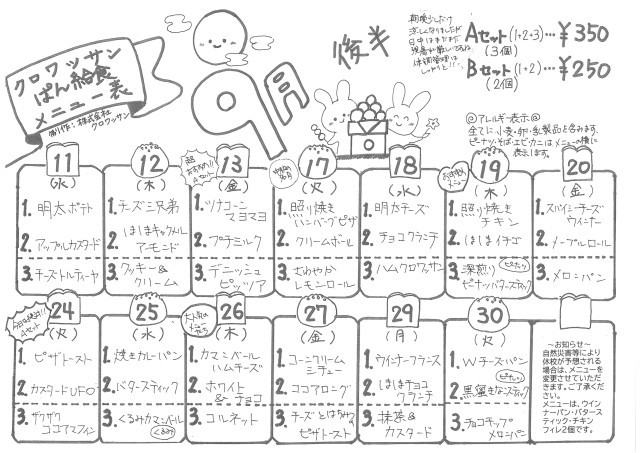 クロワッサン
ぱん給食
メニュー表
制作：株式会社
クロワッサン
9月
後半
Aセット(1+2+3)…¥350
(3個)
Bセット(1+2)…¥250
(2個)
◎アレルギー表示◎
全てに小麦・卵・乳製品を含みます。
ピーナッツ・そば・エビ・カニはメニューの横に
表示します。
11
(水)
1. 明太ポテト
2. アップルカスタード
3. チーズトルティーヤ
12
(木)
1. チーズ三兄弟
2. はしまキャラメル
アーモンド
3. クッキー&
クリーム
13
(金)
1. ツナコーン
マヨマヨ
2. プチミルク
3. デニッシュ
ピッツァ
17
(火)
1. 照り焼き
ハンバーグピザ
2. クリームボール
3. さわやか
レモンロール
18
(水)
1. 明太チーズ
2. チョコクランチ
3. ハムクロワッサン
19
(木)
1. 照り焼き
チキン
2. はしまイチゴ
3. 深煎り
ピーナッツ
ピーナッツバタースティック
20
(金)
1. スパイシーチーズ
ウィンナー
2. メープルロール
3. メロンパン
24
(火)
1. ピザトースト
2. カスタードUFO
3. ザクザク
ココアマフィン
25
(水)
1. 焼きカレーパン
2. バタースティック
3. くるみカマンベール
くるみ
26
(木)
1. カマンベール
ハムチーズ
2. ホワイト
&チョコ
3. コルネット
27
(金)
1. コーンクリーム
シチュー
2. ココアロング
3. チーズとはちみつの
ピザトースト
29
(月)
1. ウィンナーフランス
2. はしまチョコ
クランチ
3. 抹茶&
カスタード
30
(火)
1. Wチーズパン
ピーナッツ
2. 黒蜜きなこスティック
3. チョコチップ
メロンパン
～お知らせ～
自然災害等により
休校が予想される
場合は、メニューを
変更させていただ
きます。ご了承くだ
さい。
メニューは、ウイン
ナーパン・バタース
ティック・チキン
フィレ2個です。